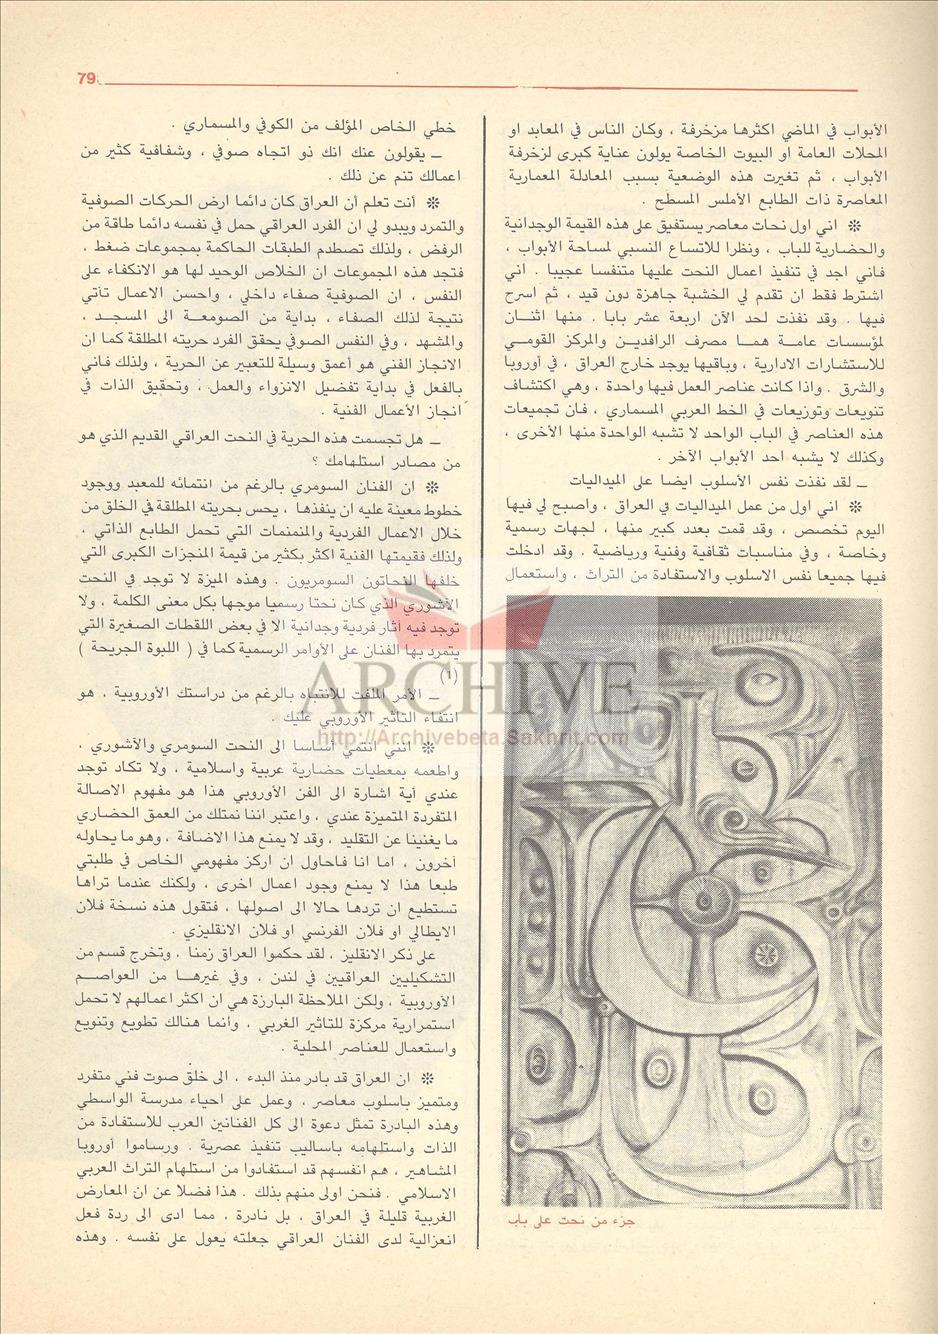 79
الأبواب في الماضي اكثرها مزخرفة ، وكان الناس في المعابد او
المحلات العامة او البيوت الخاصة يولون عناية كبرى لزخرفة
الأبواب ، ثم تغيرت هذه الوضعية بسبب المعادلة المعمارية
المعاصرة ذات الطابع الأملس المسطح .
※ اني اول نحات معاصر يستفيق على هذه القيمة الوجدانية
والحضارية للباب ، ونظرا للاتساع النسبي لمساحة الأبواب ،
فاني اجد في تنفيذ اعمال النحت عليها متنفسا عجيبا . اني
اشترط فقط ان تقدم لي الخشبة جاهزة دون قيد ، ثم اسرح
فيها . وقد نفذت لحد الآن اربعة عشر بابا . منها اثنــان
لمؤسسات عامــة همــا مصرف الرافديــن والمركز القومــي
للاستشارات الادارية ، وباقيها يوجد خارج العراق ، في أوروبا
والشرق . واذا كانت عناصر العمل فيها واحدة ، وهي اكتشاف
تنويعات وتوزيعات في الخط العربي المسماري ، فان تجميعات
هذه العناصر في الباب الواحد لا تشبه الواحدة منها الأخرى ،
وكذلك لا يشبه احد الأبواب الآخر .
ــ لقد نفذت نفس الأسلوب ايضا على الميداليات
※ اني اول من عمل الميداليات في العراق ، واصبح لي فيها
اليوم تخصص ، وقد قمت بعدد كبير منها ، لجهات رسمية
وخاصة ، وفي مناسبات ثقافية وفنية ورياضية . وقد ادخلت
فيها جميعا نفس الاسلوب والاستفادة من التراث ، واستعمال
جزء من نحت على باب
خطي الخاص المؤلف من الكوفي والمسماري .
ــ يقولون عنك انك ذو اتجاه صوفي ، وشفافية كثير من
اعمالك تنم عن ذلك .
※ أنت تعلم أن العراق كان دائما ارض الحركات الصوفية
والتمرد ويبدو لي ان الفرد العراقي حمل في نفسه دائما طاقة من
الرفض ، ولذلك تصطدم الطبقات الحاكمة بمجموعات ضغط ،
فتجد هذه المجموعات ان الخلاص الوحيد لها هو الانكفاء على
النفس ، ان الصوفية صفاء داخلي ، واحسن الاعمال تأتي
نتيجة لذلك الصفاء ، بداية من الصومعــة الى المسجــد ،
والمشهد ، وفي النفس الصوفي يحقق الفرد حريته المطلقة كما ان
الانجاز الفني هو أعمق وسيلة للتعبير عن الحرية ، ولذلك فاني
بالفعل في بداية تفضيل الانزواء والعمل ، وتحقيق الذات في
انجاز الأعمال الفنية .
ــ هل تجسمت هذه الحرية في النحت العراقي القديم الذي هو
من مصادر استلهامك ؟
※ ان الفنان السومري بالرغم من انتمائه للمعبد ووجود
خطوط معينة عليه ان ينفذها ، يحس بحريته المطلقة في الخلق من
خلال الاعمال الفردية والمنمنمات التي تحمل الطابع الذاتي ،
ولذلك فقيمتها الفنية اكثر بكثير من قيمة المنجزات الكبرى التي
خلفها النحاتون السومريون . وهذه الميزة لا توجد في النحت
الآشوري الذي كان نحتا رسميا موجها بكل معنى الكلمة ، ولا
توجد فيه آثار فردية وجدانية الا في بعض اللقطات الصغيرة التي
يتمرد بها الفنان على الأوامر الرسمية كما في ( اللبوة الجريحة )
(١)
ــ الأمر الملفت للانتباه بالرغم من دراستك الأوروبية ، هو
انتفاء التأثير الأوروبي عليك .
※ انني أنتمي أساسا الى النحت السومري والآشوري ،
واطعمه بمعطيات حضارية عربية واسلامية ، ولا تكاد توجد
عندي أية اشارة الى الفن الأوروبي هذا هو مفهوم الاصالة
المتفردة المتميزة عندي ، واعتبر اننا نمتلك من العمق الحضاري
ما يغنينا عن التقليد ، وقد لا يمنع هذا الاضافة ، وهو ما يحاوله
آخرون ، اما انا فاحاول ان اركز مفهومي الخاص في طلبتي
طبعا هذا لا يمنع وجود اعمال اخرى ، ولكنك عندما تراها
تستطيع ان تردها حالا الى اصولها ، فتقول هذه نسخة فلان
الايطالي او فلان الفرنسي او فلان الانقليزي .
على ذكر الانقليز ، لقد حكموا العراق زمنا ، وتخرج قسم من
التشكيليين العراقيين في لندن ، وفي غيرهــا من العواصــم
الأوروبية ، ولكن الملاحظة البارزة هي ان اكثر اعمالهم لا تحمل
استمرارية مركزة للتاثير الغربي ، وانما هنالك تطويع وتنويع
واستعمال للعناصر المحلية .
※ ان العراق قد بادر منذ البدء ، الى خلق صوت فني متفرد
ومتميز باسلوب معاصر ، وعمل على احياء مدرسة الواسطي
وهذه البادرة تمثل دعوة الى كل الفنانين العرب للاستفادة من
الذات واستلهامه باساليب تنفيذ عصرية . ورساموا أوروبا
المشاهير ، هم انفسهم قد استفادوا من استلهام التراث العربي
الاسلامي . فنحن اولى منهم بذلك . هذا فضلا عن ان المعارض
الغربية قليلة في العراق ، بل نادرة ، مما ادى الى ردة فعل
انعزالية لدى الفنان العراقي جعلته يعول على نفسه . وهذه
ARCHIVE
http://Archivebeta.Sakhrit.com